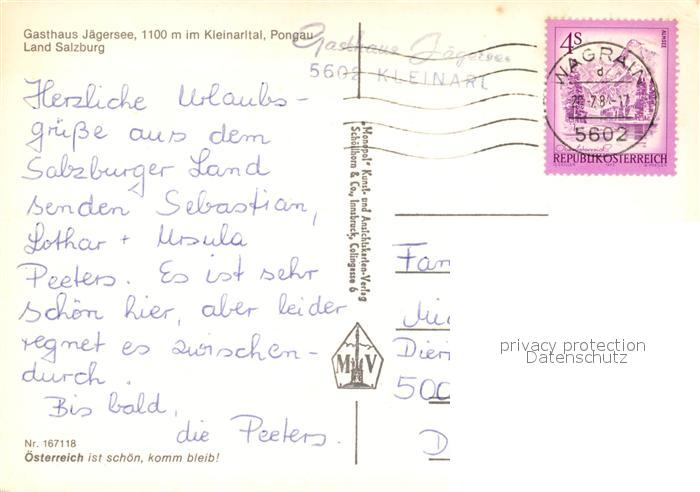 Gasthaus Jägersee, 1100 m im Kleinarltal, Pongau
Land Salzburg
Gasthaus Jägersee
5602 KLEINARL
4 S
ALMSEE
WAGRAIN
5602
REPUBLIK ÖSTERREICH
Herzliche Urlaubs-
grüße aus dem
Salzburger Land
senden Sebastian,
Lothar + Ursula
Peeters. Es ist sehr
schön hier, aber leider
regnet es zwischen-
durch.
Bis bald,
die Peeters.
Nr. 167118
Österreich ist schön, komm bleib!
»Monopol« Kunst- und Ansichtskarten-Verlag
Schöllhorn & Co., Innsbruck, Colingasse 6
M V
Fam
Dier
500
D
privacy protection
Datenschutz